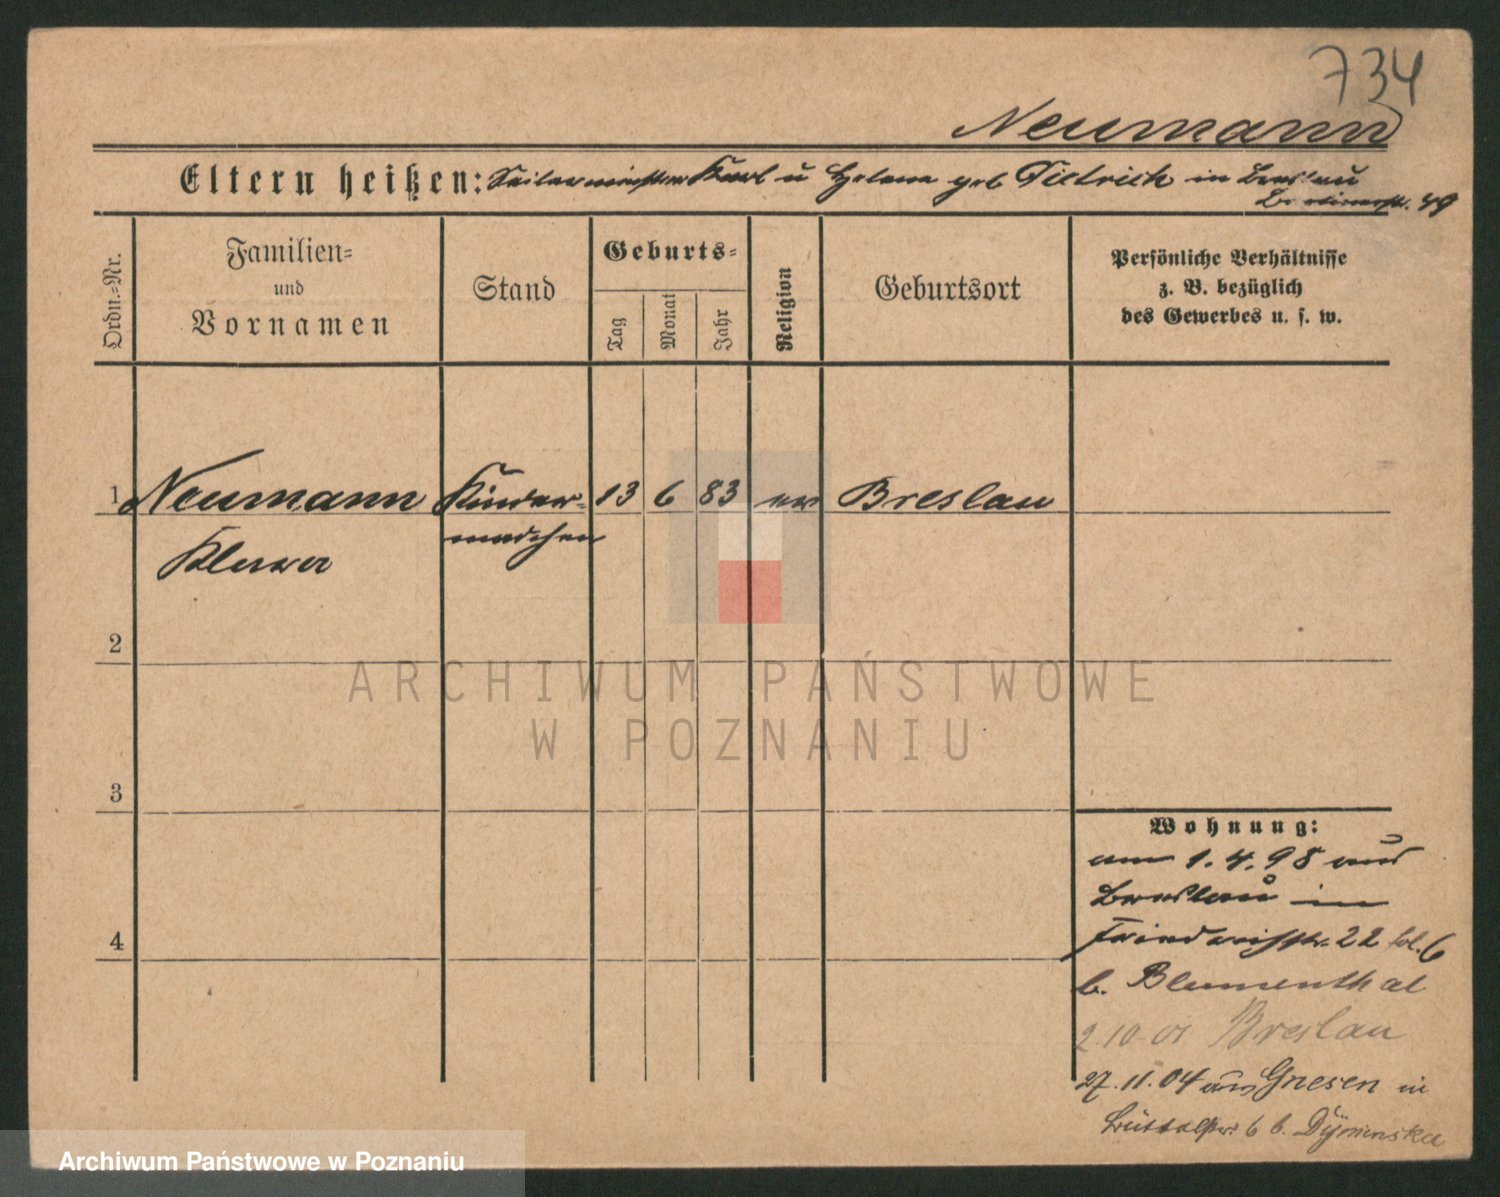 734
Neumann
Eltern heißen: Seilermeister Karl u Helene geb Dietrich in Breslau
49
Ordn.-Nr.
Familien-
und
Vornamen
Stand
Geburts-
Tag
Monat
Jahr
Religion
Geburtsort
Persönliche Verhältnisse
z. B. bezüglich
des Gewerbes u. s. w.
1 Neumann Kinder- 13 6 83 ev Breslau
mädchen
Klara
2
3
4
Wohnung:
am 1.4.98 aus
Breslau in
22 6
b. Blumenthal
2.10.01 Breslau
27.11.04 aus Gnesen in
6 b.
ARCHIWUM PAŃSTWOWE
W POZNANIU
Archiwum Państwowe w Poznaniu